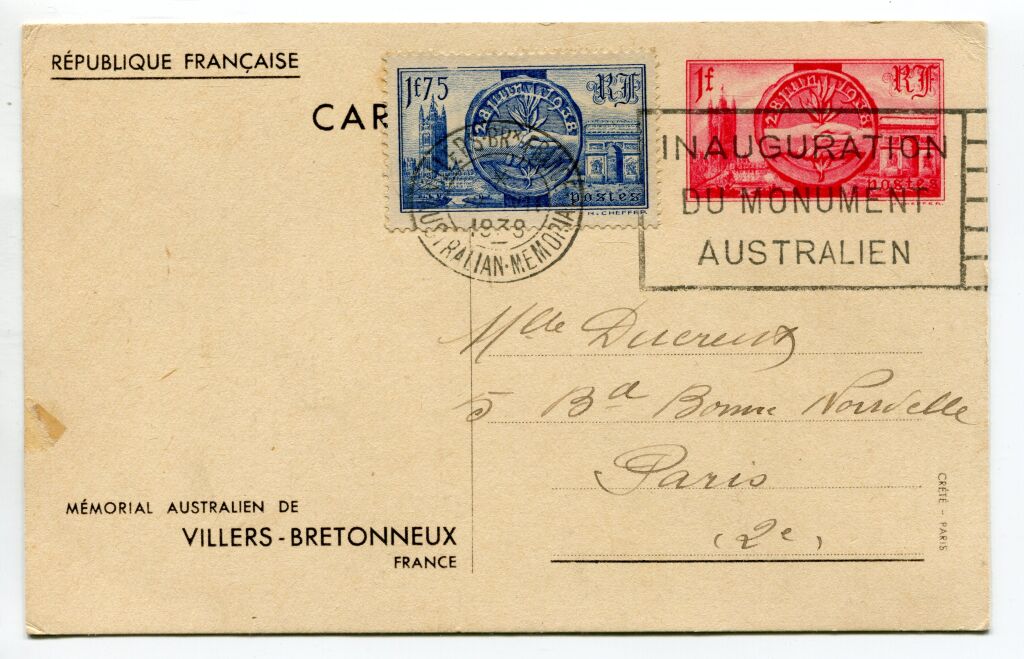 RÉPUBLIQUE FRANÇAISE
CAR
1f75
RF
28 juin 1938
postes
H. CHEFFER
1f
RF
28 juin 1938
postes
CHEFFER
1938
AUSTRALIAN·MEMORIAL
INAUGURATION
DU MONUMENT
AUSTRALIEN
Mlle Ducreux
5 Bd Bonne Nouvelle
Paris
(2e)
MÉMORIAL AUSTRALIEN DE
VILLERS-BRETONNEUX
FRANCE
CRÉTÉ - PARIS